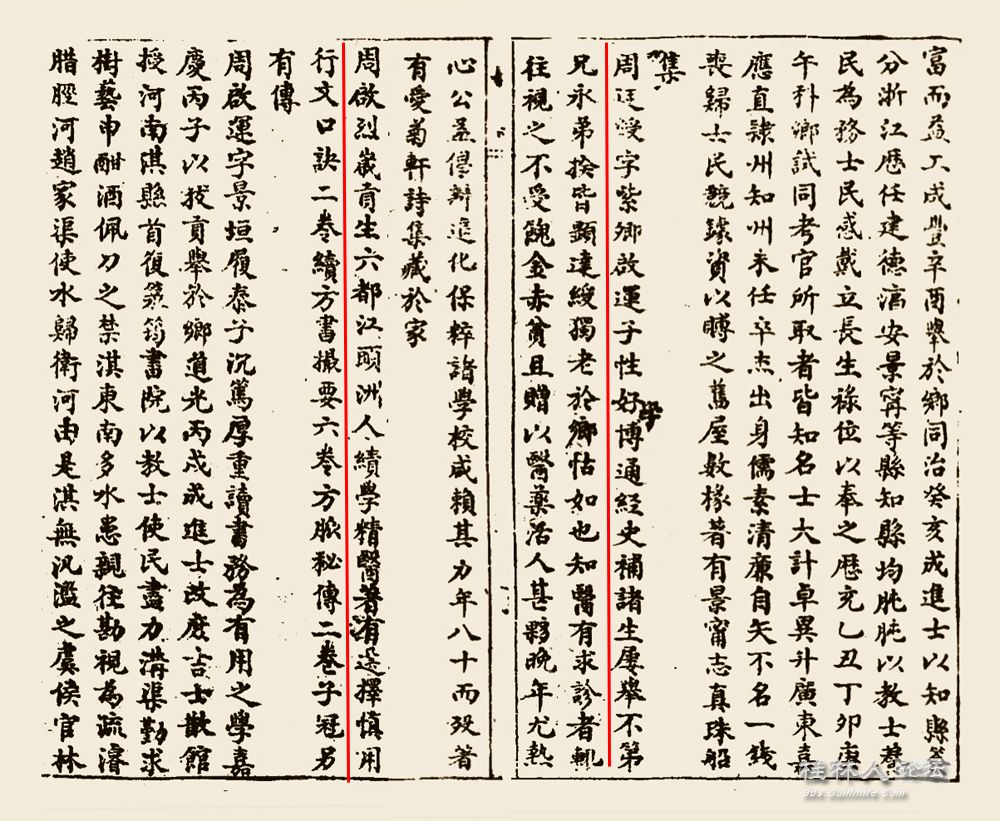 富而益工咸豐辛酉舉於鄉同治癸亥成進士以知縣簽
分浙江歷任建德濡安景寗等縣知縣均肫肫以教士養
民為務士民感戴立長生祿位以奉之歷充乙丑丁卯庚
午科鄉試同考官所取者皆知名士大計卓異升廣東嘉
應直隸州知州未任卒杰出身儒素清廉自矢不名一錢
喪歸士民競醵資以賻之舊屋數椽著有景甯志真珠船
集
周廷綬字紫卿啟運子性好學博通經史補諸生屢舉不第
兄永弟揆皆顯達綬獨老於鄉怙如也知醫有求診者輒
往視之不受餽金赤貧且贈以醫藥活人甚夥晚年尤熱
心公益傳辯進化保粹諸學校咸賴其力年八十而歿著
有愛菊軒詩集藏於家
周啟烈歲貢生六都江頭洲人績學精醫著有選擇慎用
行文口訣二卷續方書撮要六卷方脈秘傳二卷子冠另
有傳
周啟運字景垣履泰子沉篤厚重讀書務為有用之學嘉
慶丙子以拔貢舉於鄉道光丙戌成進士改庶吉士散館
授河南淇縣首復箓筠書院以教士使民盡力溝渠勤求
樹藝申酣酒佩刀之禁淇東南多水患親往勘視為疏濬
腊脛河趙家渠使水歸衛河由是淇無汎濫之虞侯官林
桂林人论坛
Bbs.Guilinlife.com